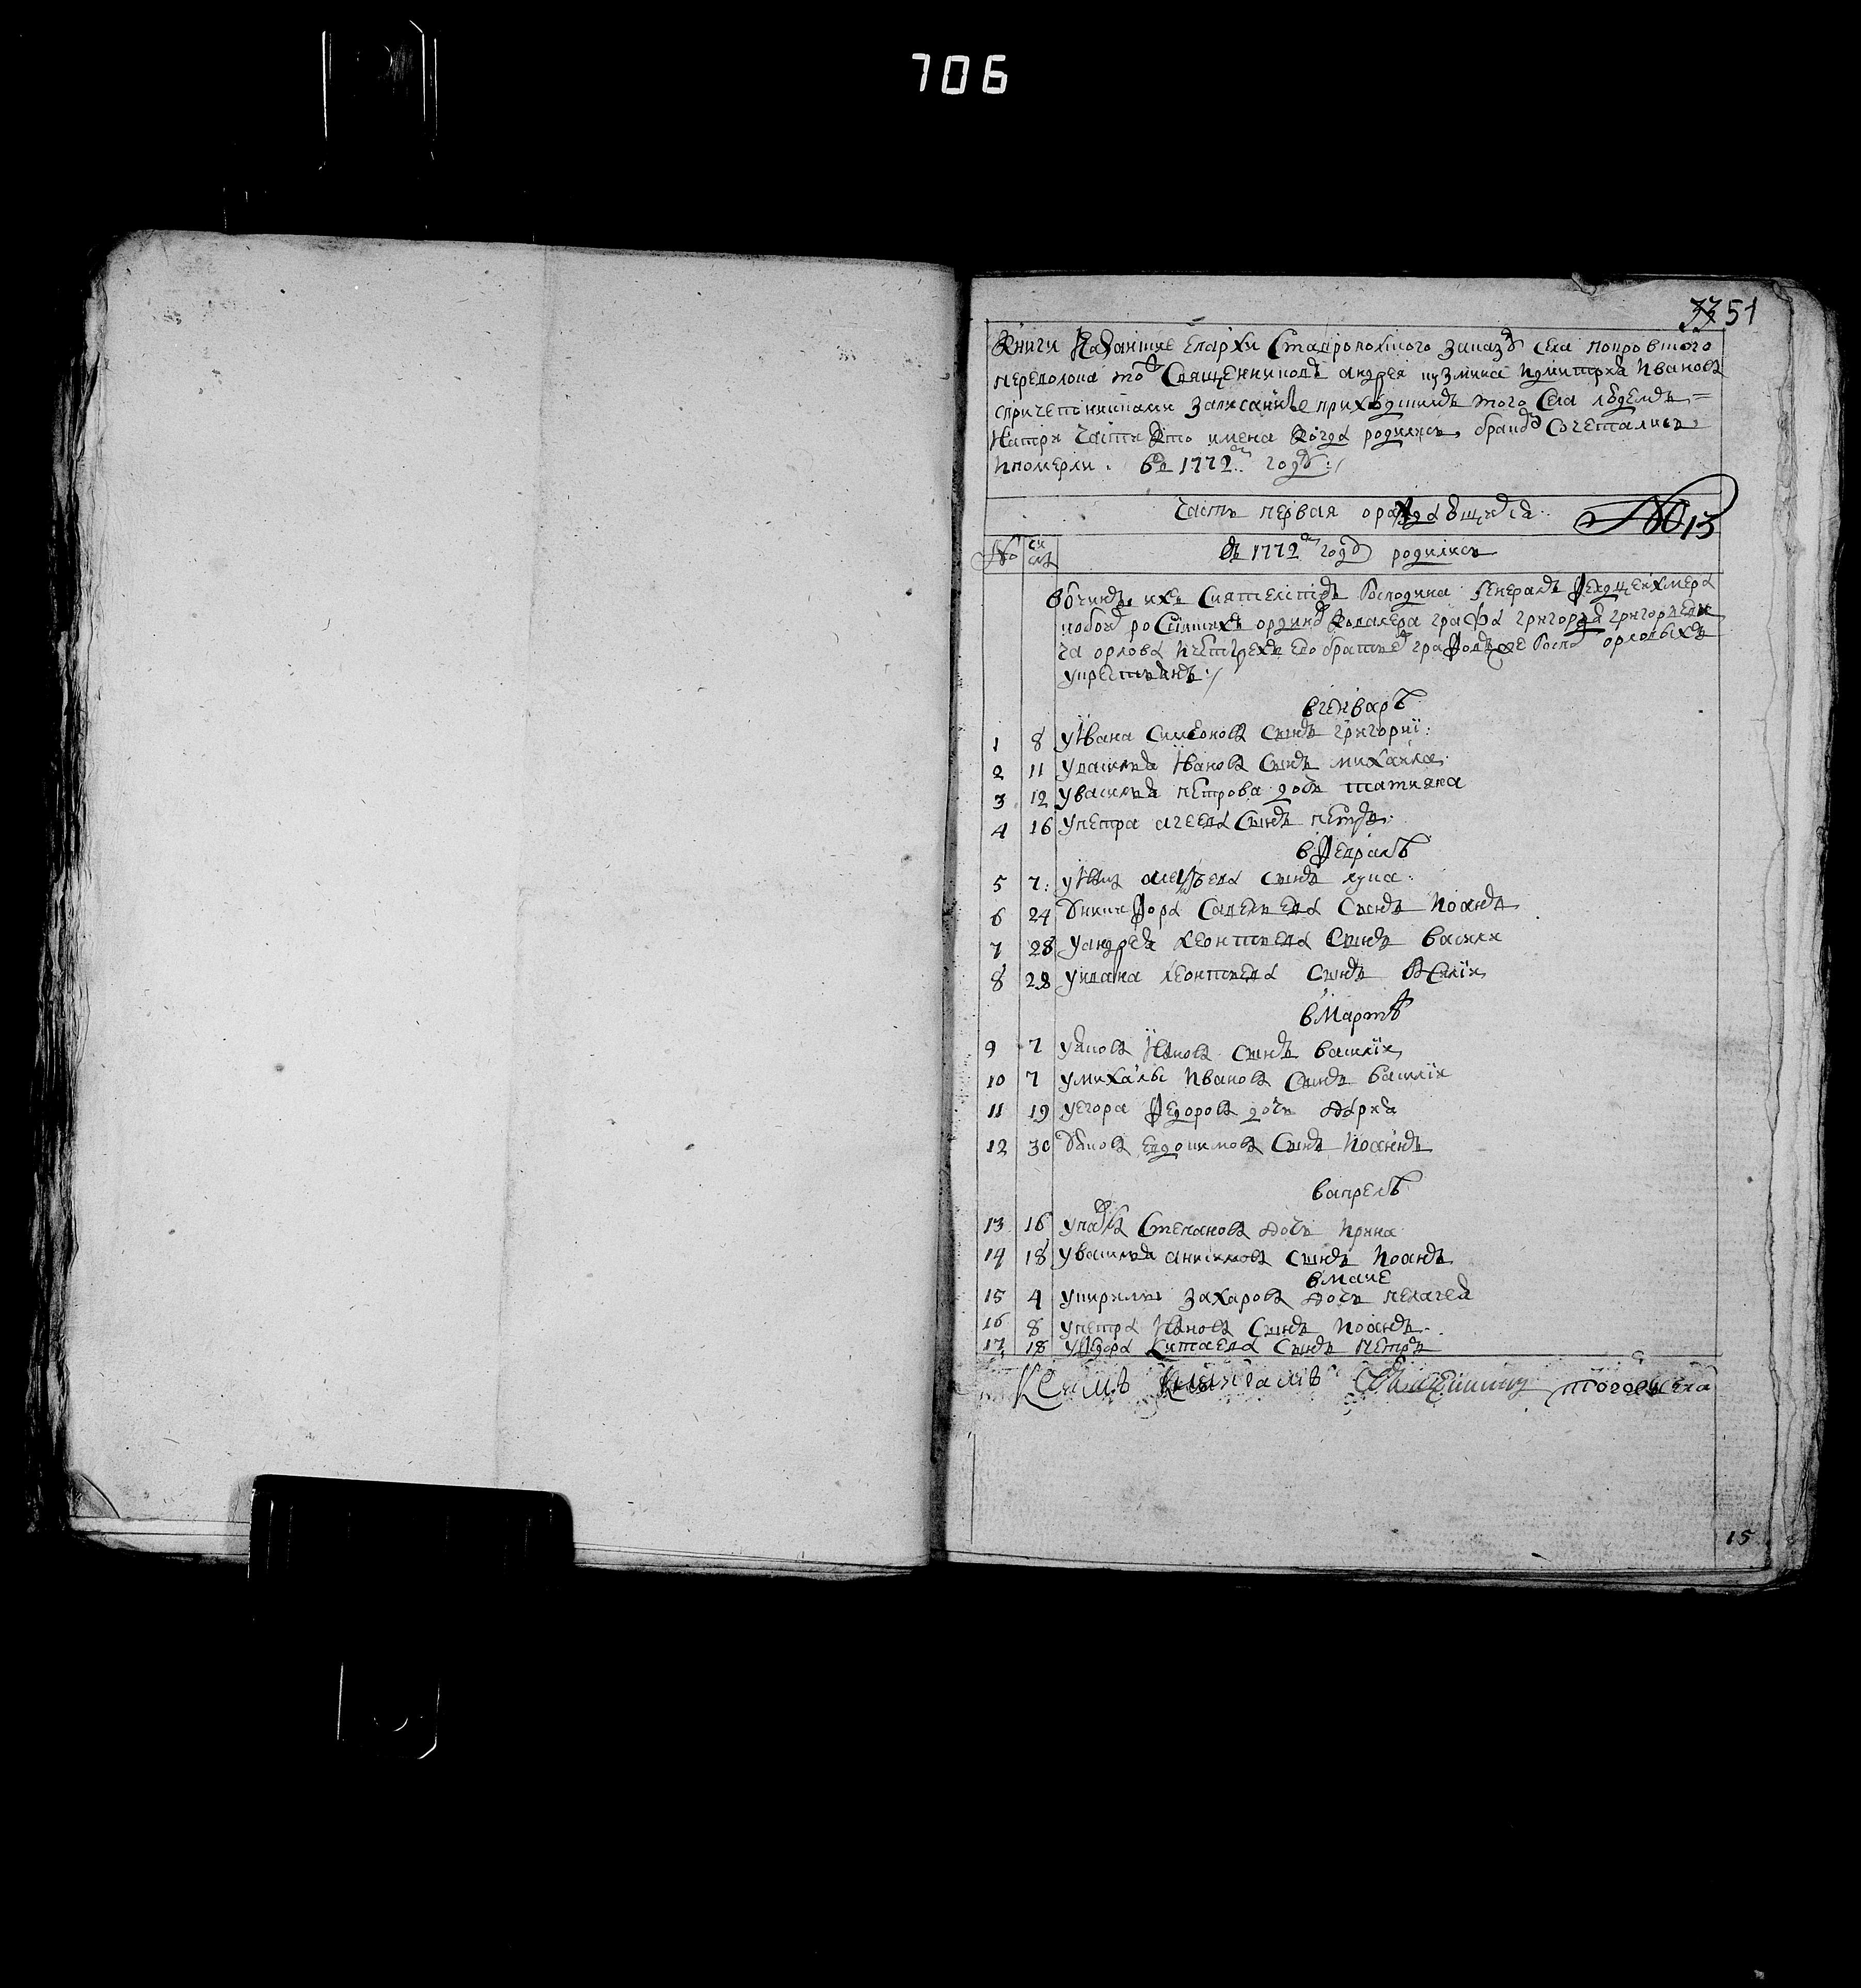 706
33 51
Книги Казанские епархи Ставрополского заказу села покровского
переволока тож Священниковъ андрея кузмина идмитрея Иванова
спричетниками записание приходскимъ того Села людемъ =
Натри части кто имена когда родилис, бракомъ Сочеталис
ипомерли. въ 1772м году
Часть первая ораждающихся.
№ 13
№ чи сла
въ 1772м году родилис
вочинъ ихъ Сиятелствъ Господина Генералъ Фелдцейхмера
иобоих росиискихъ ординовъ Ковалера графа григорья григорьеви
ча орлова ичетырехъ его братьев графовъ же Госпд орловыхъ
укрестьянъ
вгенваръ
1 8 уИвана Симеонова Сынъ григорий:
2 11 увасилья Иванова Сынъ михаила
3 12 увасилья петрова дочь татияна
4 16 упетра агеева Сынъ петръ
вфевралъ
5 7: алексъева сынъ лука
6 24 уникифора Савельева Сынъ Иоанъ
7 28 уандрея леонтьева Сынъ василя
8 28 уивана леонтьева Сынъ Василии
вМартъ
9 7 уякова Иванова Сынъ василии
10 7 умихаилы Иванова Сынъ василии
11 19 уегора Федорова дочь дарья
12 30 уякова евдокимова Сынъ Иоаннъ
вапрелъ
13 16 Степанова дочь Ирина
14 18 увасилья анисимова Сынъ Иоанъ
вмаие
15 4 укирилы Захарова дочь пелагея
16 8 упетра Иванова Сынъ Иоанъ
17 18 уФедора Китаева Сынъ Петръ
Ксимъ книгамъ Священникъ тогожъ села
15